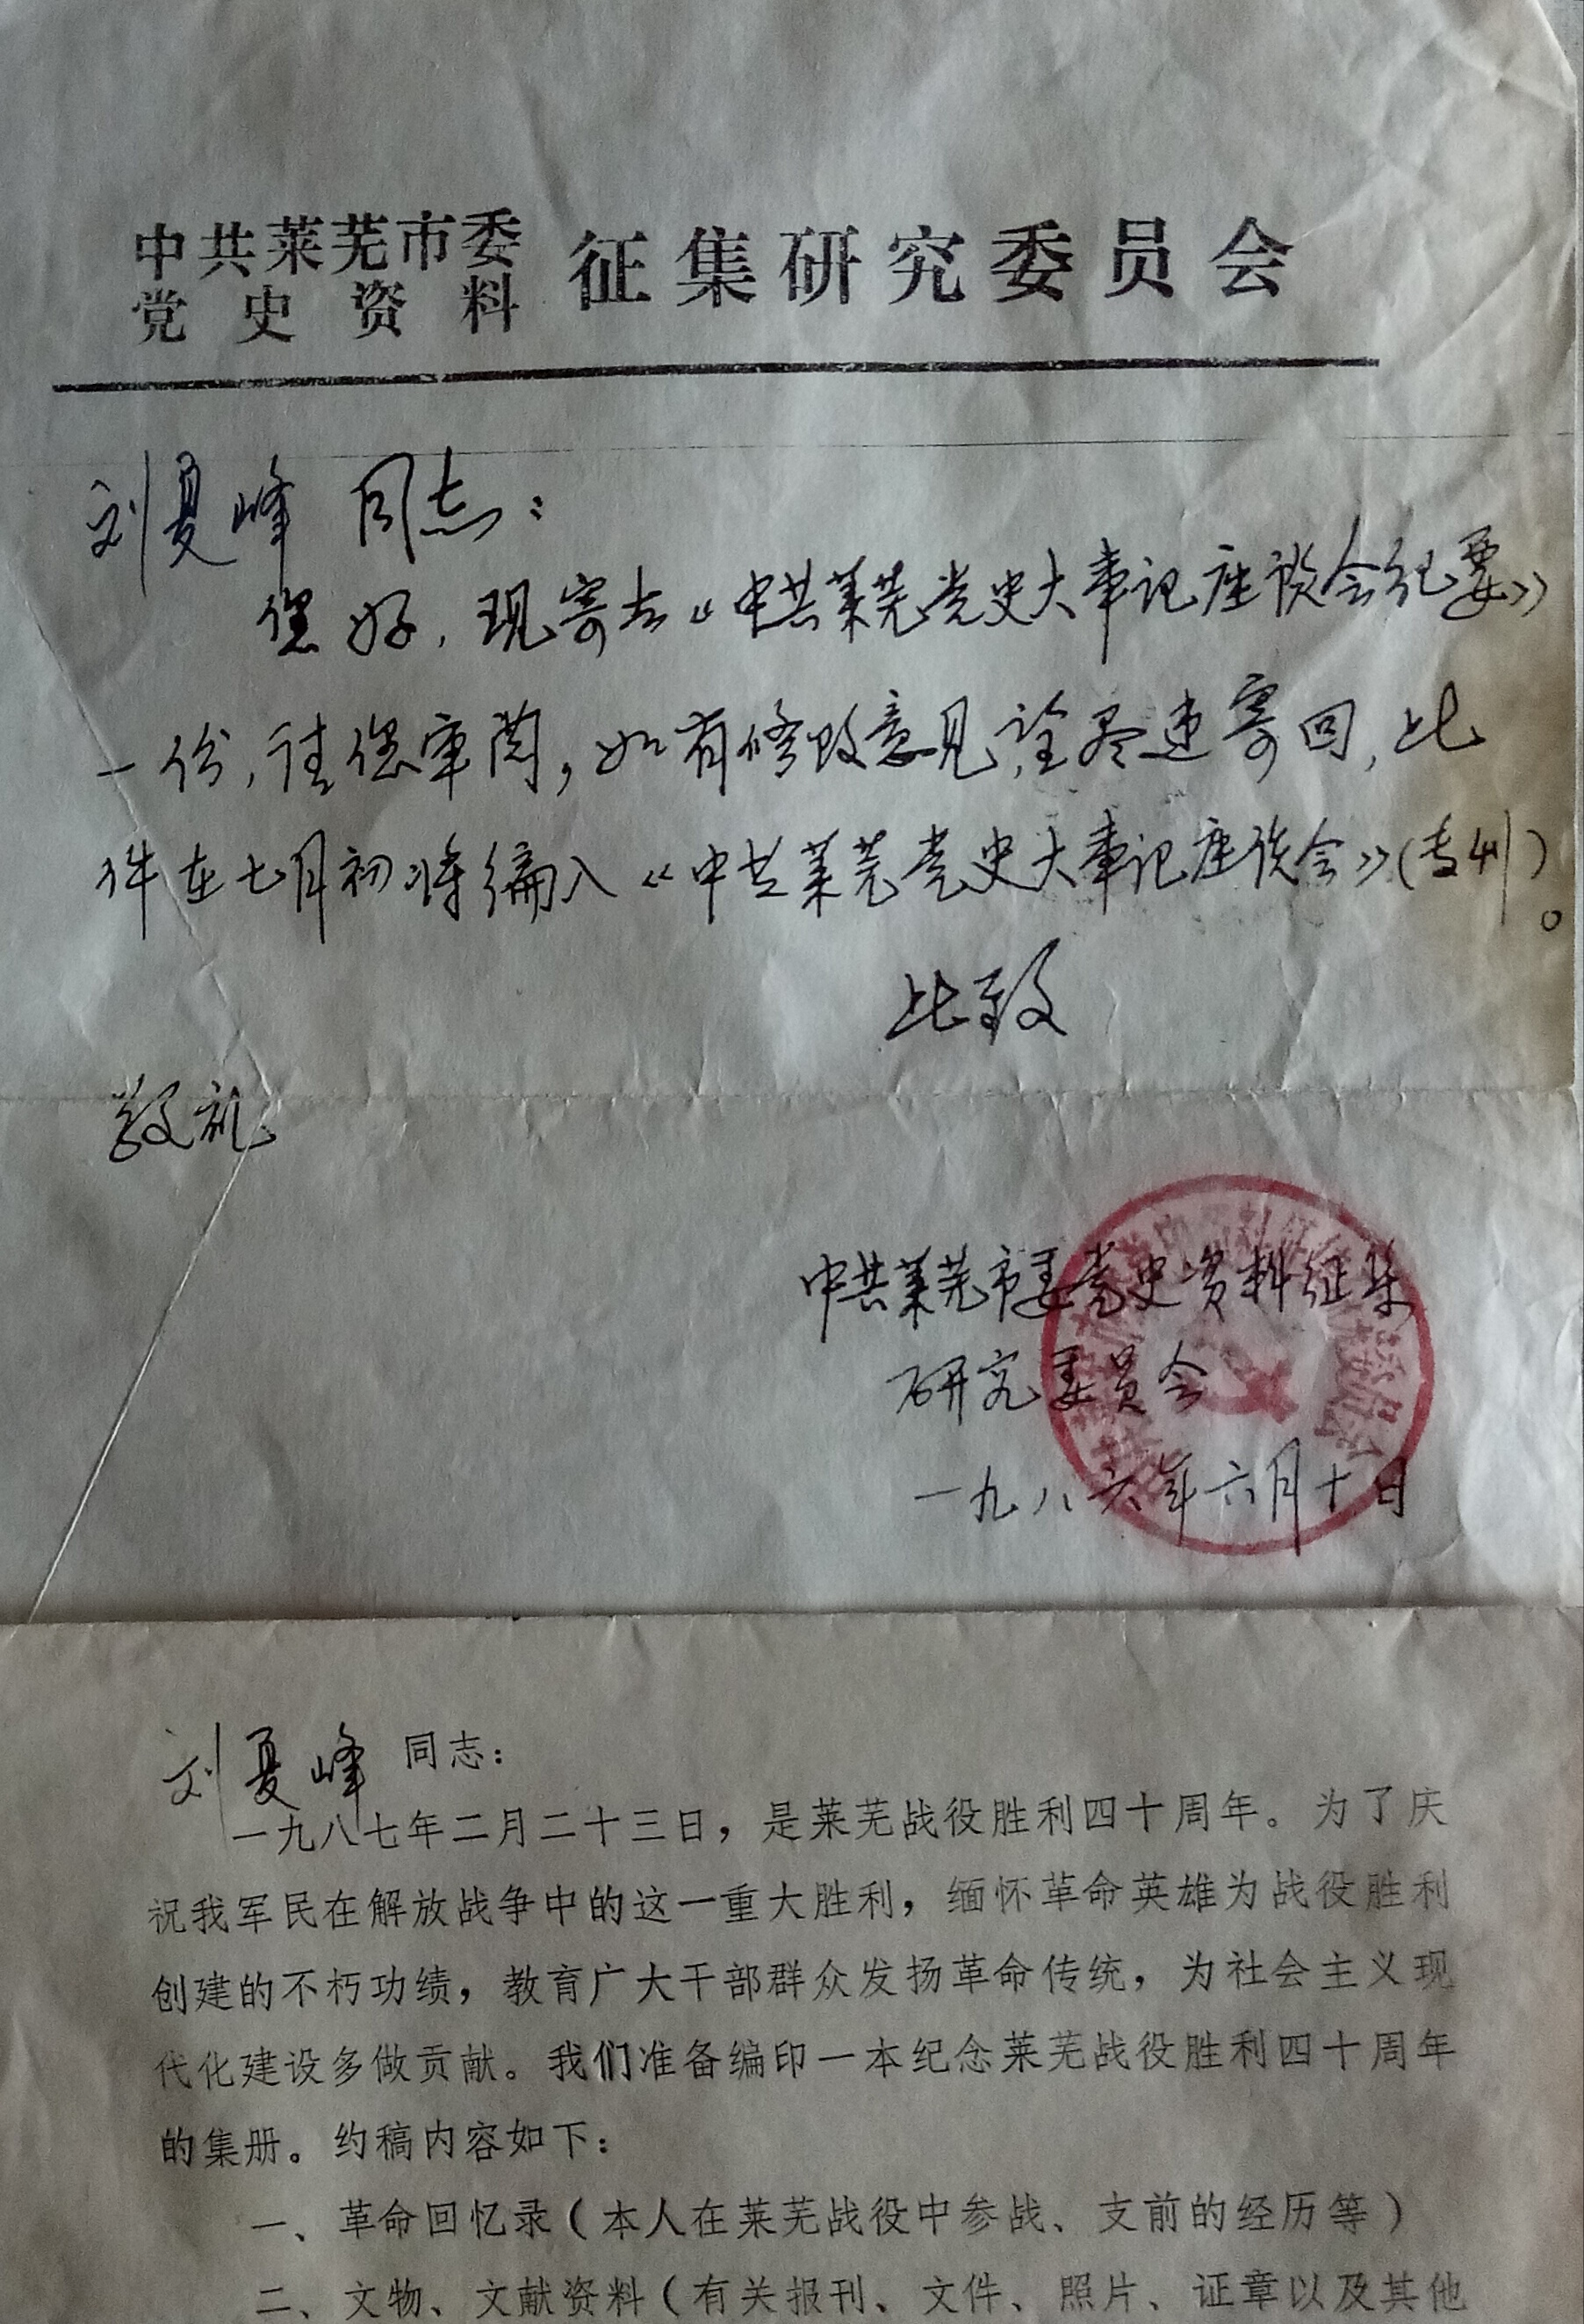 中共莱芜市委
党史资料 征集研究委员会
刘夏峰 同志：
您好，现寄去《中共莱芜党史大事记座谈会纪要》
一份，请您审阅，如有修改意见，请尽速寄回，此
件在七月初将编入《中共莱芜党史大事记座谈会》（专刊）。
此致
敬礼
中共莱芜市委党史资料征集
研究委员会
一九八六年六月十日
刘夏峰 同志：
一九八七年二月二十三日，是莱芜战役胜利四十周年。为了庆
祝我军民在解放战争中的这一重大胜利，缅怀革命英雄为战役胜利
创建的不朽功绩，教育广大干部群众发扬革命传统，为社会主义现
代化建设多做贡献。我们准备编印一本纪念莱芜战役胜利四十周年
的集册。约稿内容如下：
一、革命回忆录（本人在莱芜战役中参战、支前的经历等）
二、文物、文献资料（有关报刊、文件、照片、证章以及其他